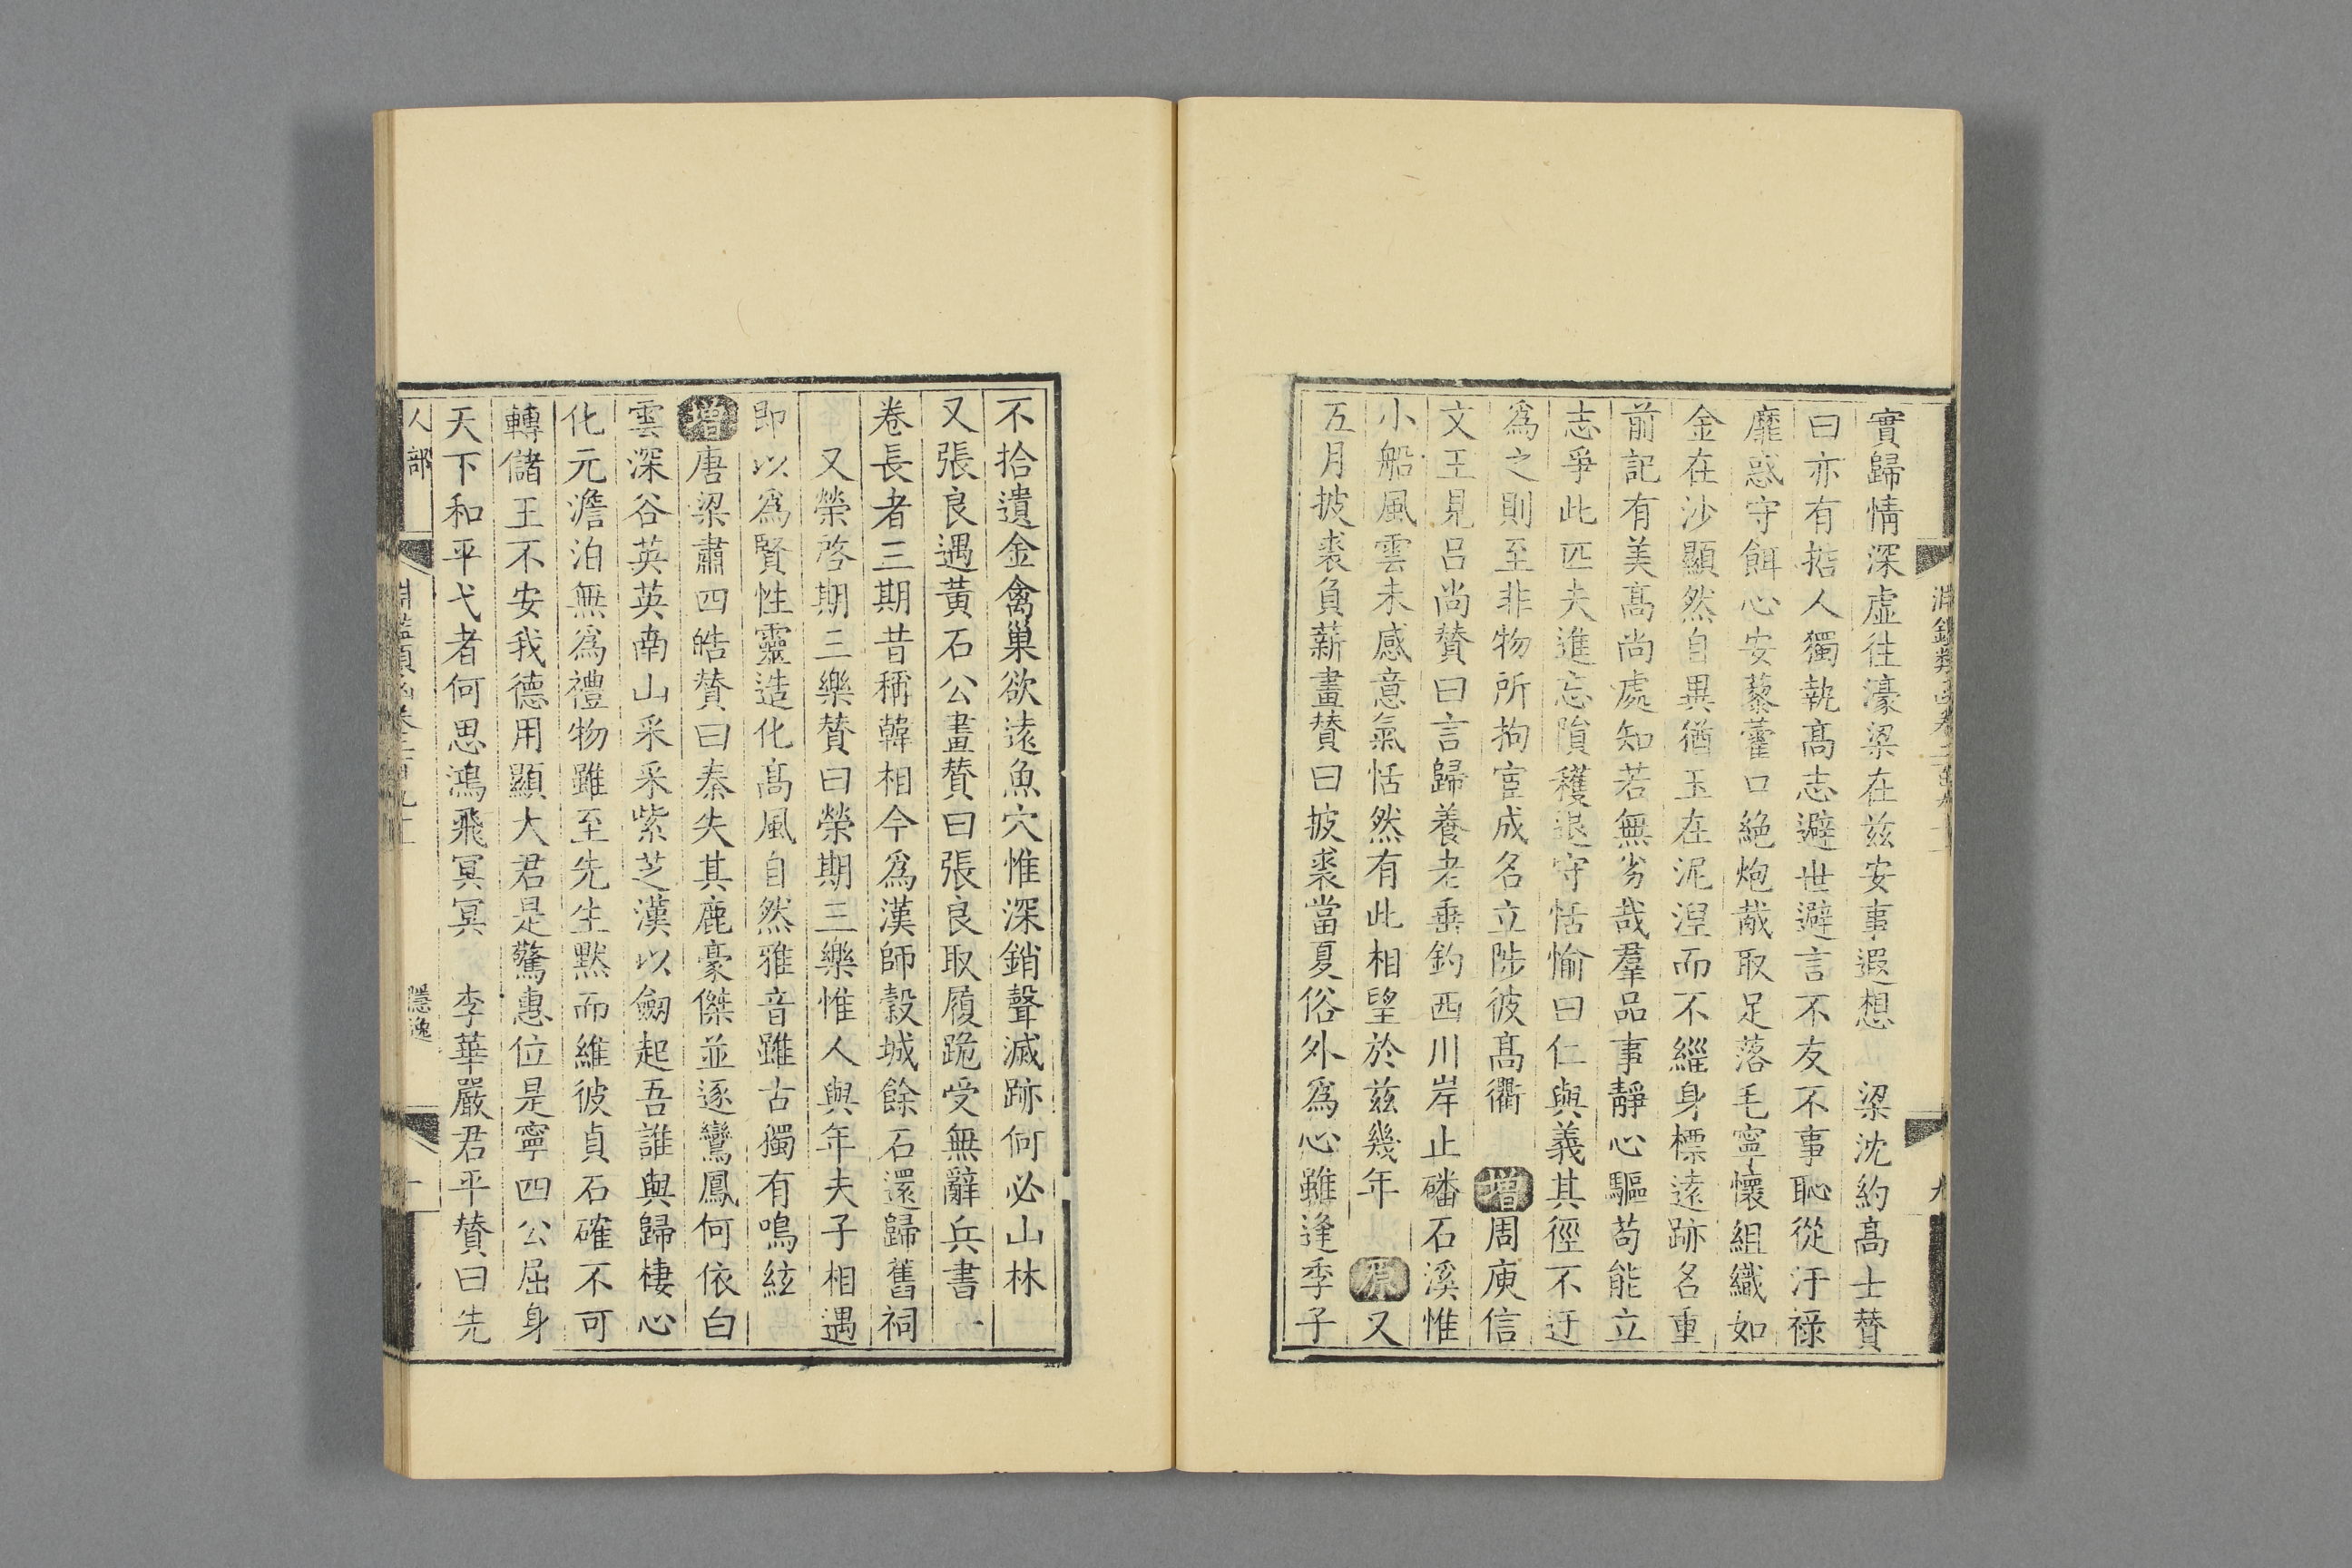 實歸情深虛往濠梁在茲安事遐想　梁沈約髙士賛
曰亦有掂人獨執髙志避世避言不友不事恥從汙祿
靡惑守餌心安藜藿口絶炮胾取足落毛寧懷組織如
金在沙顯然自異猶玉在泥涅而不緇身標遠跡名重
前記有美髙尚處知若無劣哉羣品事靜心驅苟能立
志爭此匹夫進忘隕穫退守恬愉曰仁與義其徑不迂
爲之則至非物所拘宦成名立陟彼髙衢　增周庾信
文王見呂尚賛曰言歸養老垂釣西川岸止磻石溪惟
小船風雲未感意氣恬然有此相望於茲幾年　原又
五月披裘負薪畫賛曰披裘當夏俗外爲心雖逢季子
不拾遺金禽巢欲遠魚穴惟深銷聲滅跡何必山林
又張良遇黃石公畫賛曰張良取履跪受無辭兵書一
卷長者三期昔稱韓相今爲漢師穀城餘石還歸舊祠
又榮啓期三樂賛曰榮期三樂惟人與年夫子相遇
即以爲賢性靈造化髙風自然雅音雖古獨有鳴絃
增唐梁肅四皓賛曰秦失其鹿豪傑並逐鸞鳳何依白
雲深谷英英南山采采紫芝漢以劒起吾誰與歸棲心
化元澹泊無爲禮物雖至先生黙而維彼貞石確不可
轉儲王不安我德用顯大君是驚惠位是寧四公屈身
天下和平弋者何思鴻飛冥冥　李華嚴君平賛曰先
人部
隱逸